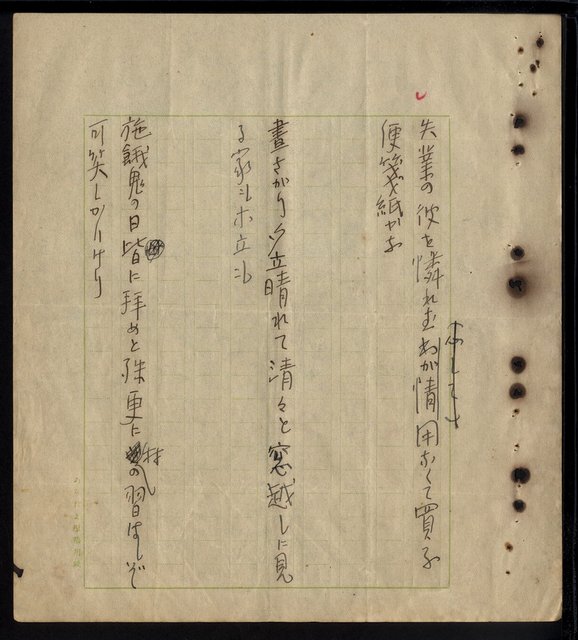 失業の彼を憐れむわが情用なくて買ふ
便箋紙かな
晝さがり夕立晴れて清々と窓越しに見
る家も木立も
施餓鬼の日皆に拝めと殊更に村の習はしぞ
可笑しかりけり